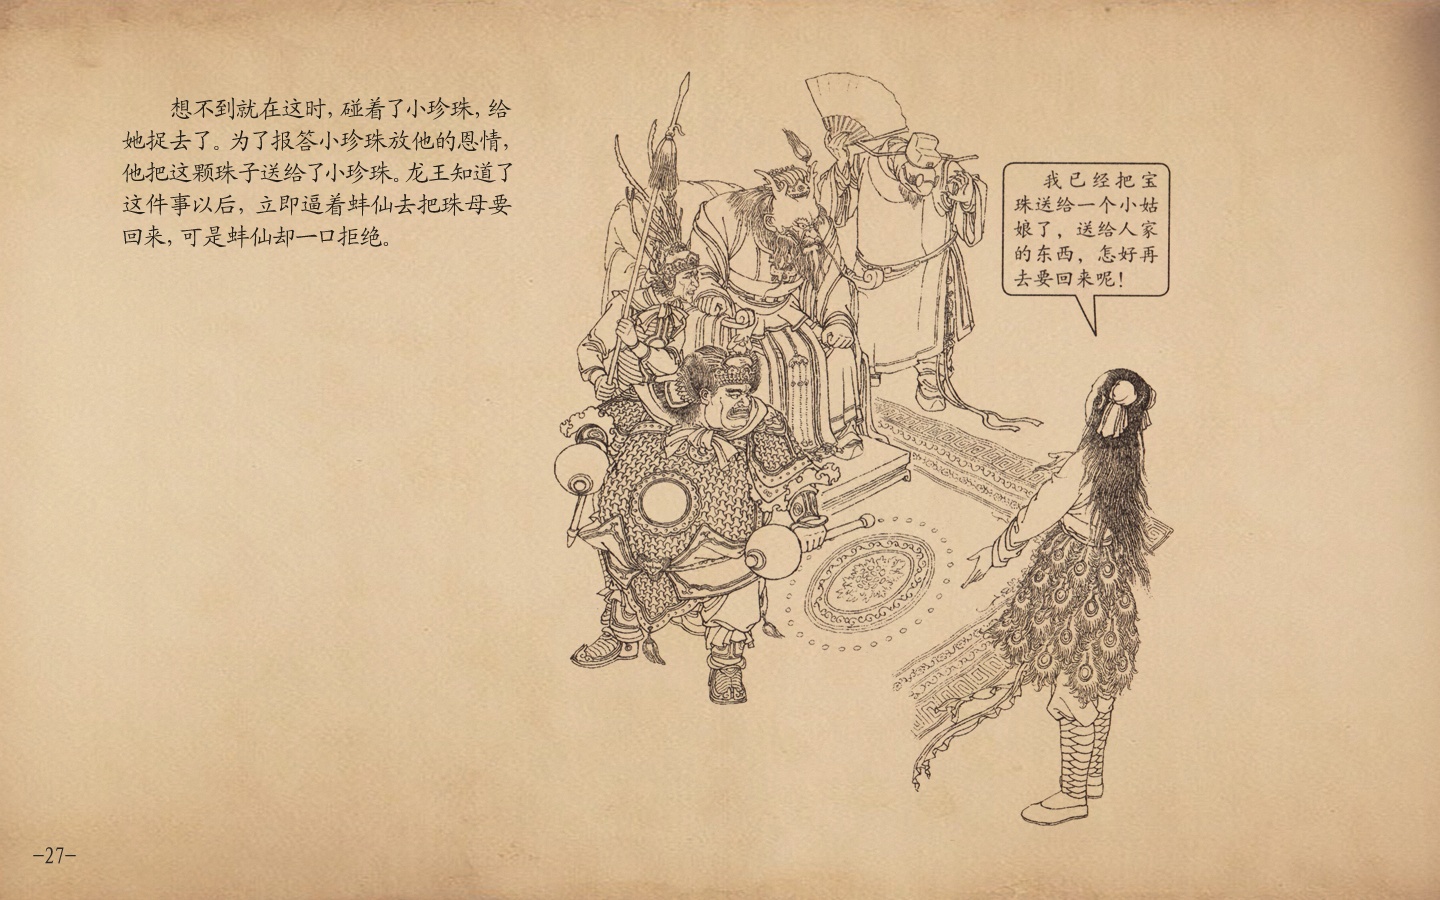 想不到就在这时，碰着了小珍珠，给
她捉去了。为了报答小珍珠放他的恩情，
他把这颗珠子送给了小珍珠。龙王知道了
这件事以后，立即逼着蚌仙去把珠母要
回来，可是蚌仙却一口拒绝。
我已经把宝
珠送给一个小姑
娘了，送给人家
的东西，怎好再
去要回来呢！
—27—